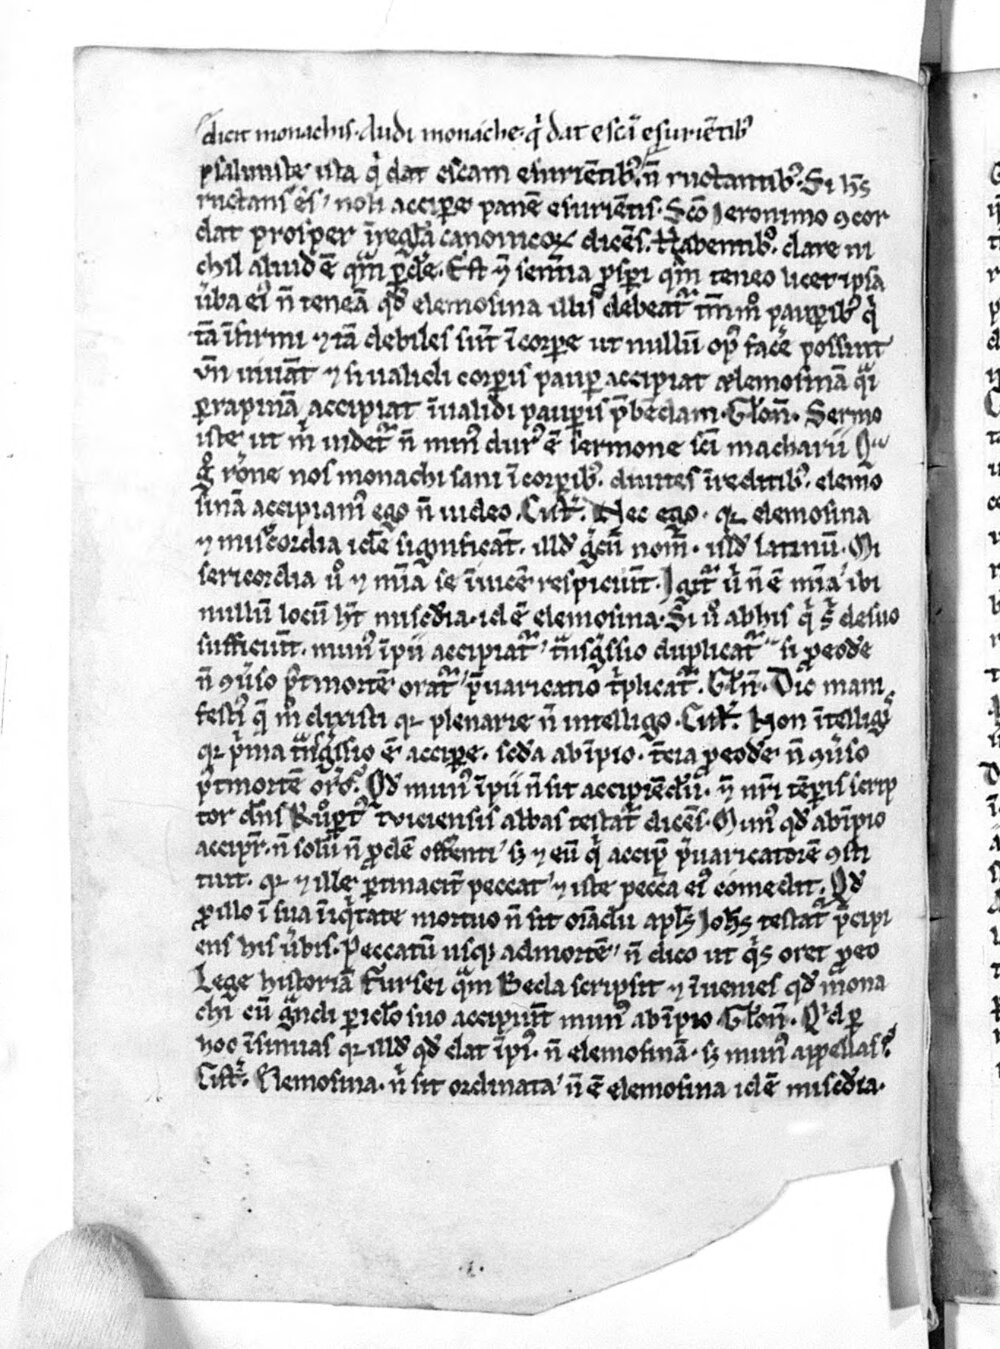 dicit monachis. Audi monache. q̇ dat escā esuriētib᷒
psalmiste ista q̇ dat escam esuriētib᷒. n̄ ructantib᷒. Si h̄s
ructans es, noli accipere panē esuriētis. Sc̄o Jeronimo ꝯcor
dat prosper ī regl̄a canonicoꝝ dicēs. Habentib᷒ dare ni
chil aliud ē qm̄ ꝑdere. Est ꝗ̄ sent̄ia ꝓsꝑi qm̄ teneo licet ipsa
ūba ei᷒ n̄ teneā qd̄ elemosina illis debeat᷑ tm̄m᷒ pauꝑib᷒ q̇
tā īfirmi ⁊ tā debiles sūt ī corꝑe ut nullū op᷒ facē possint
vn̄ uiuāt ⁊ si ualidi corꝑis pauꝑ accipiat elemosinā q̇i
ꝑ rapinā accipiat īualidi pauꝑis p̄bendam. Clōn̄. Sermo
iste ut ṁ uidet᷑ n̄ min᷒ dur᷒ ē sermone sc̄i macharii Q̇
g̊ rōne nos monachi sani ī corꝑib᷒. diuites ī redditib᷒. elemo
sinā accipiam᷒ ego n̄ uideo. Cist̄. Nec ego. qꝛ elemosina
⁊ mis̄cordia idē significāt. illd̄ g̊cū nom̄. istd̄ latinū. Mi
sericordia u̇᷒ ⁊ mīa se īuicē respiciūt. Igit᷑ u̇ n̄ ē mīa ibi
nullū locū h̄t mis̄dia. id ē elemosina. Si u̇᷒ ab his q̇ s̄ de suo
sufficiūt. mun᷒ īpii accipiat᷑, tn̄sg̊ssio duplicat᷑. si ꝓ eodē
n̄ ꝯūso p᷒t mortē orat᷑, p̄uaricatio t̄plicat᷑. Clōn̄. Dic mani
festi᷒ q̄ ṁ dixisti qꝛ plenarie n̄ intelligo. Cist̄. Non ītellig᷒
qꝛ p̄ma tn̄sg̊ssio ē accipere. sc̄da ab īpio. t̄cia ꝓ eodē n̄ ꝯūso
p᷒t mortē orās. Qd̄ mun᷒ īpii n̄ sit accipiēdū. ꝗ̄ nr̄i tēꝑis scrip
tor dn̄s Ruꝑt᷒ tuiciensis abbas testat᷑ dicēs. Mun᷒ qd̄ ab īpio
accipit᷑. n̄ solū n̄ ꝓdē offerenti, sꝫ ⁊ eū q̇ accipit p̄uaricatorē ꝯsti
tuit. qꝛ ⁊ ille ꝑtinacit̄ peccat, ⁊ iste pecc̄a ei᷒ comedit. Qd̄
ꝓ illo ī sua īiq̇tate mortuo n̄ sit orādū apl̄s Joh̄s testat᷑ p̄cipi
ens his ūbis. Peccatū usqꝫ ad mortē, n̄ dico ut q̇s oret ꝓ eo
Lege historiā Fursei qm̄ Beda scripsit ⁊ īuenies qd̄ mona
chi cū g̊ndi ꝑiclo suo accipiūt mun᷒ ab īpio. Clōn̄. Qd̄ ꝑ
hoc īsinuas qꝛ illd̄ qd̄ dat īpi᷒. n̄ elemosinā. sꝫ mun᷒ appellas?
Cist̄. Elemosina. n̄ sit ordinata, n̄ ē elemosina id ē mis̄dia.
.1.